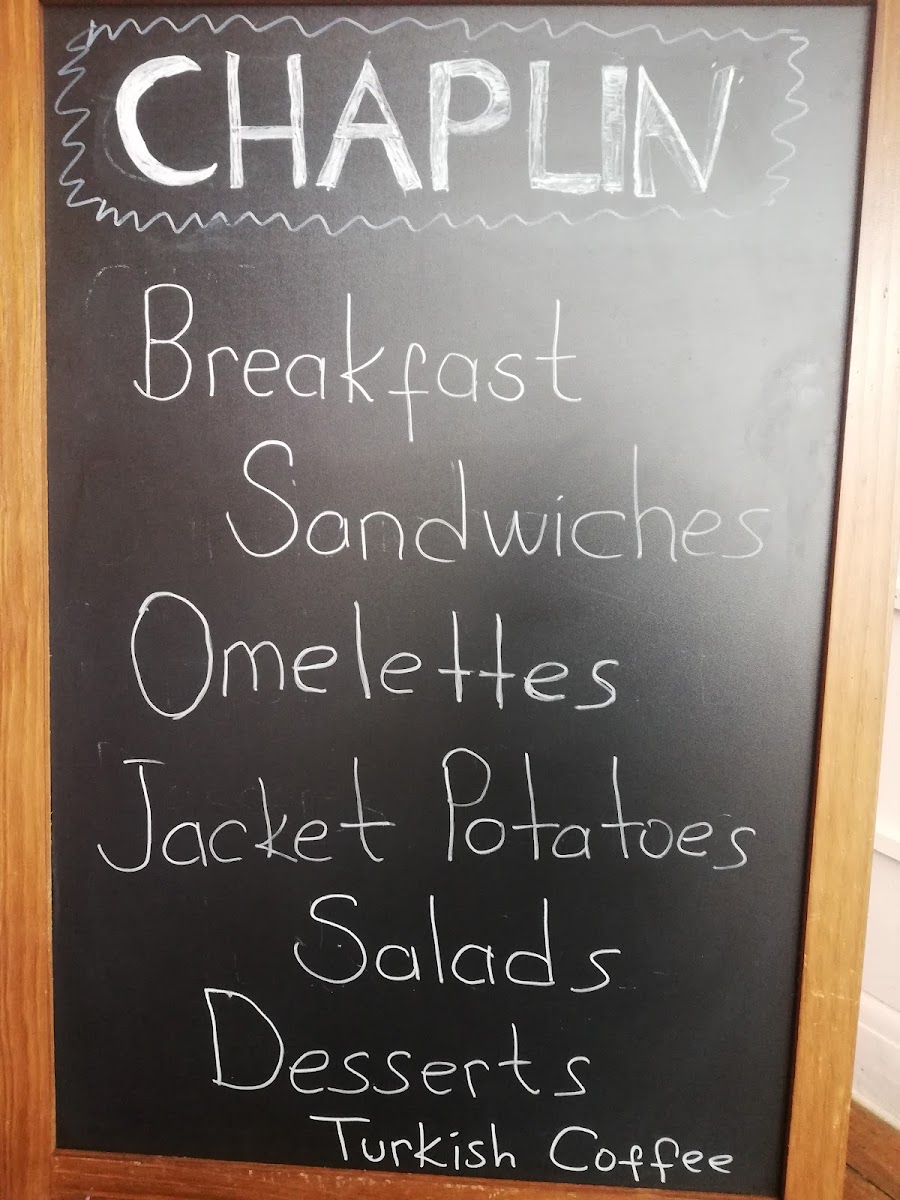 CHAPLIN
Breakfast
Sandwiches
Omelettes
Jacket Potatoes
Salads
Desserts
Turkish Coffee